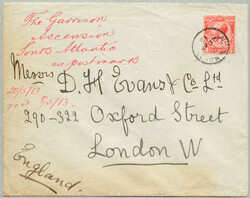 The Garrison
Ascension
South Atlantic
on postmark
Messrs D. H. Evans & Co. Ltd
290-322 Oxford Street
London W
England.